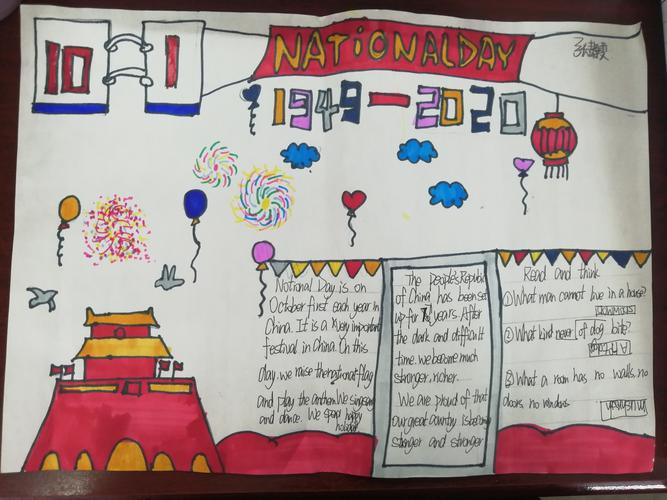 10 1
NATiONALDAY
1949—2020
National Day is on
October first each year in
China. It is a very important
festival in China. On this
day. we raise the national flag
and play the anthem. We sing song
and dance. We spend happy
holiday
The people's Republic
of China has been set
up for years. After
the dark and difficult
time. we become much
stronger, richer.
We are proud of that
our great country is becoming
stronger and stronger
Read and think
① What man cannot live in a house?
snowman
② What kind never of dog bite?
③ What a room has no walls, no
doors no windows
Mushroom